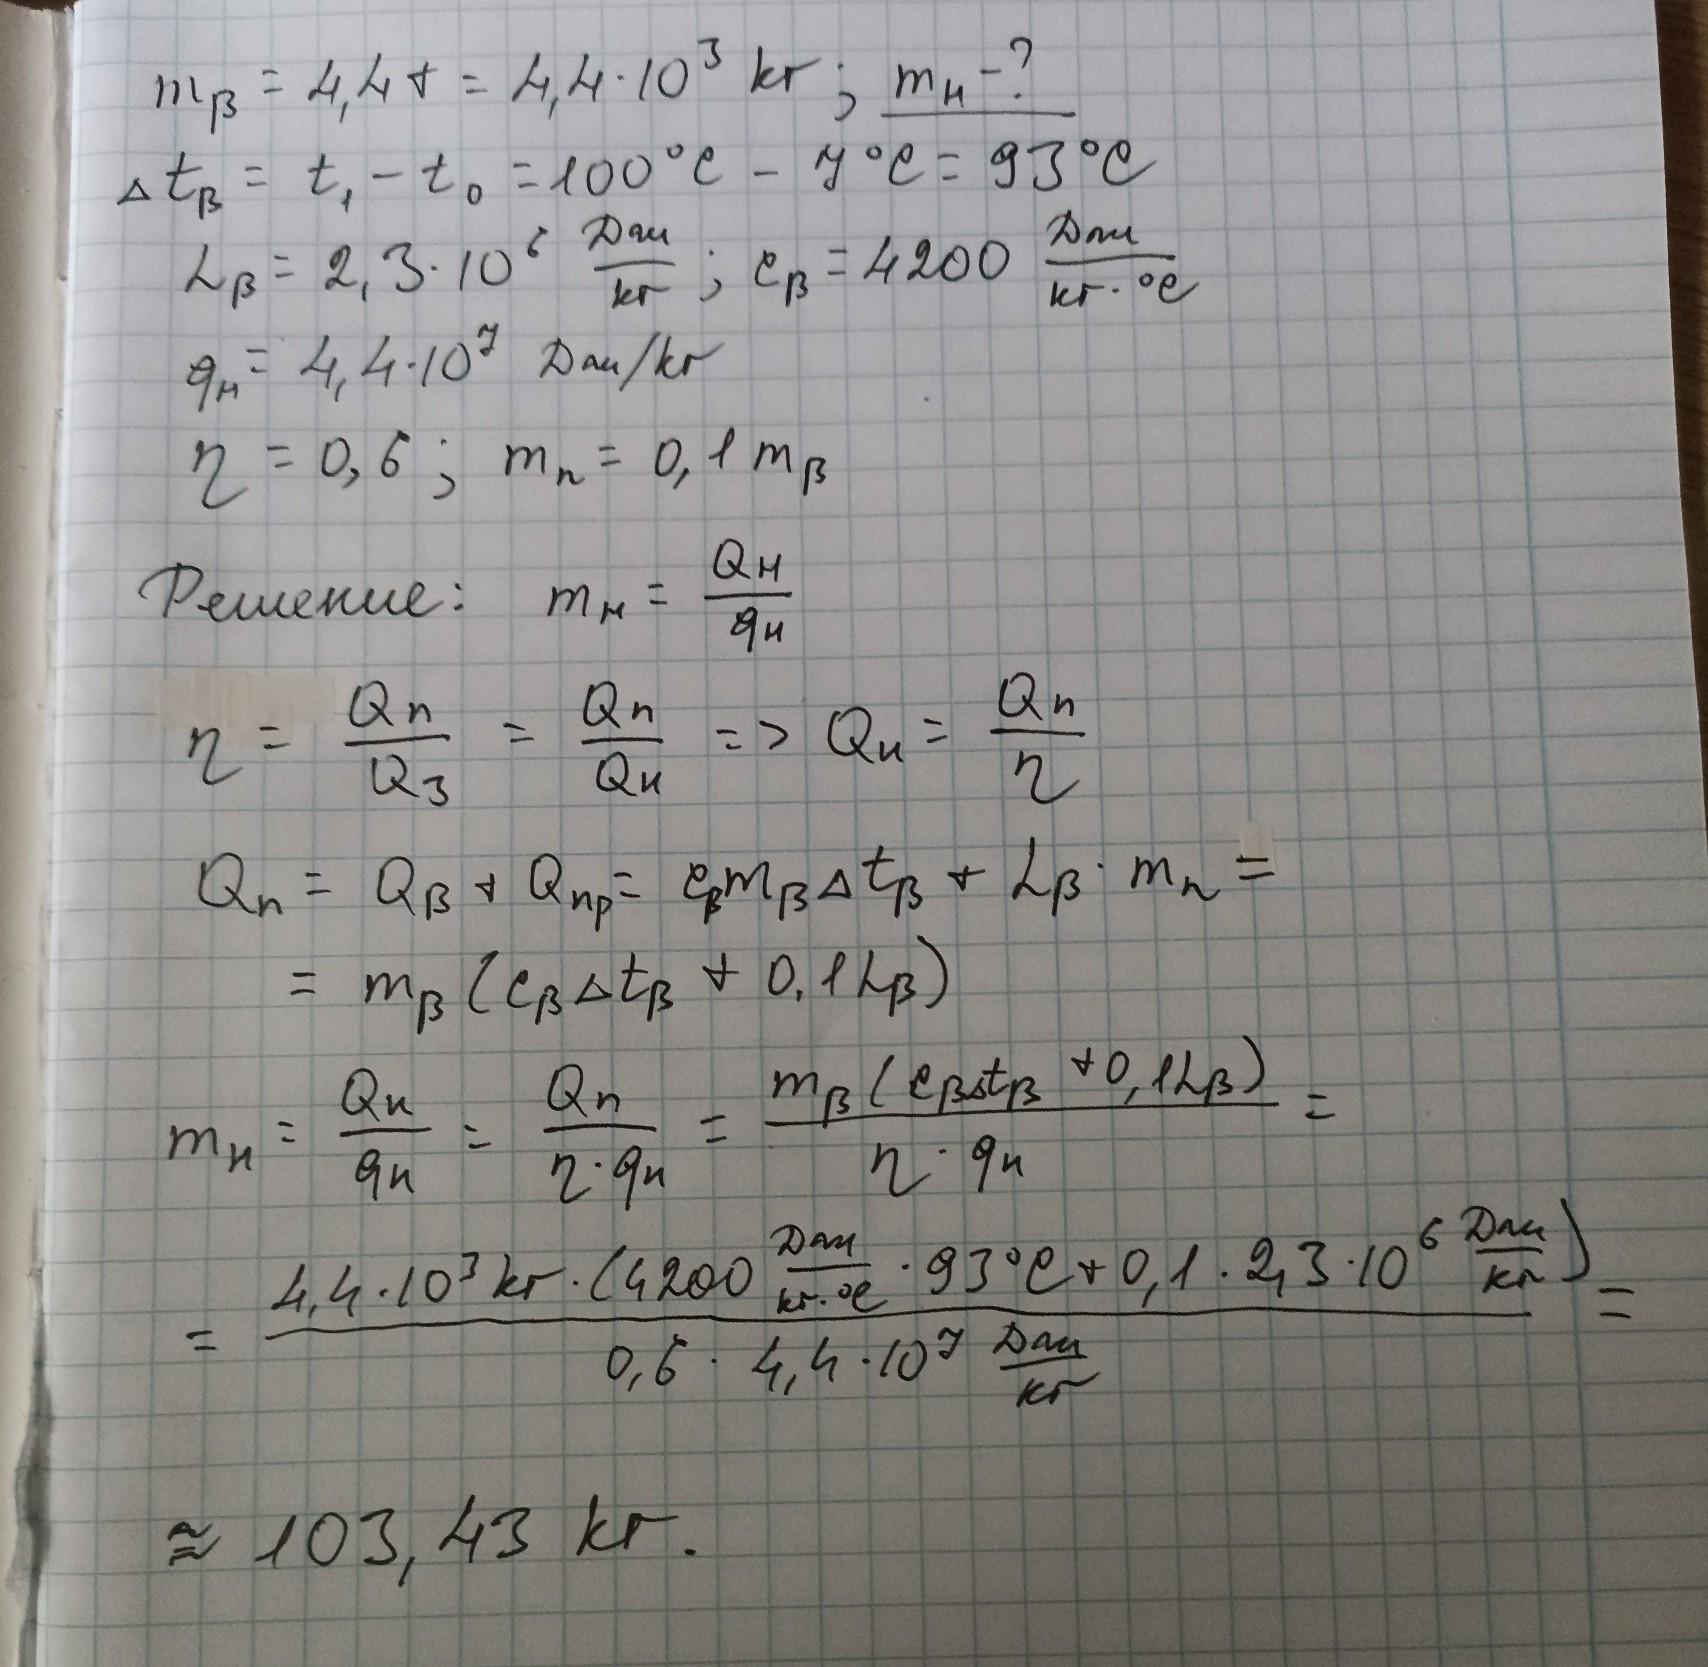 mβ = 4,4т = 4,4·10³ кг; mн - ?
Δtβ = t₁ - t₀ = 100°C - 7°C = 93°C
Lβ = 2,3·10⁶ Дж/кг; cβ = 4200 Дж/кг·°C
qн = 4,4·10⁷ Дж/кг
η = 0,6; mп = 0,1mβ
Решение: mн = Qн/qн
η = Qп/Qз = Qп/Qн => Qн = Qп/η
Qп = Qβ + Qпр = cβmβΔtβ + Lβ·mп =
= mβ(cβΔtβ + 0,1Lβ)
mн = Qн/qн = Qп/η·qн = mβ(cβΔtβ + 0,1Lβ)/η·qн =
= 4,4·10³кг·(4200 Дж/кг·°C · 93°C + 0,1·2,3·10⁶ Дж/кг)/0,6·4,4·10⁷ Дж/кг =
≈ 103,43 кг.